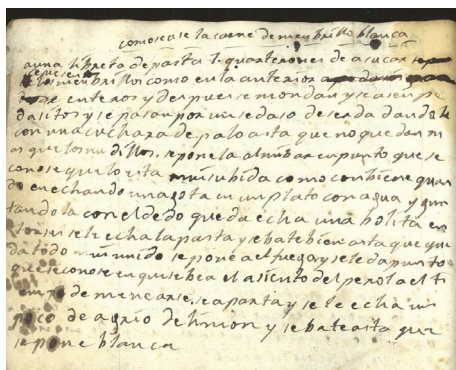 como se ase la carne de menbrillo blanca
a una libreta de pasta 7. quarterones de asucar
se cuesen los menbrillos como en la anterior
enteros y despues se mondan y se asen pe
dasitos y se pasan por un sedaso de serda dandole
con una cuchara de palo asta que no quedan m
as que los nudillos. se pone la almibar en punto que se
conose que lo esta mui subida como conbiene quan
do en echando una gota en un plato con agua y qun
tandola con el dedo queda echa una bolita en
tonses se le echa la pasta y se bate bien asta que que
da todo mui unido se pone a el fuego y se le da punto
que se conose en que se bea el asiento del perol a el ti
empo de menearse. se aparta y se le echa un
poco de agrio de limon y se bate asta que
se pone blanca